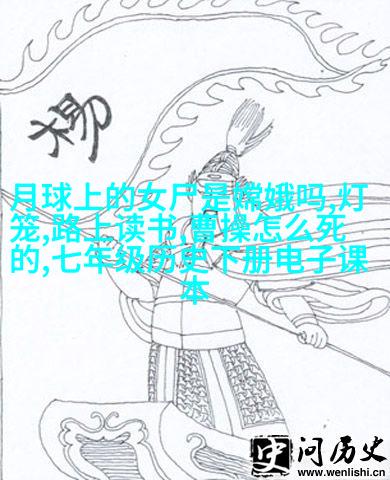 楊
月球上的女尸是嫦娥吗,灯
笼,路上读书,曹操怎么死
的,七年级历史下册电子课
本
史 问历史
www.wenlishi.cn